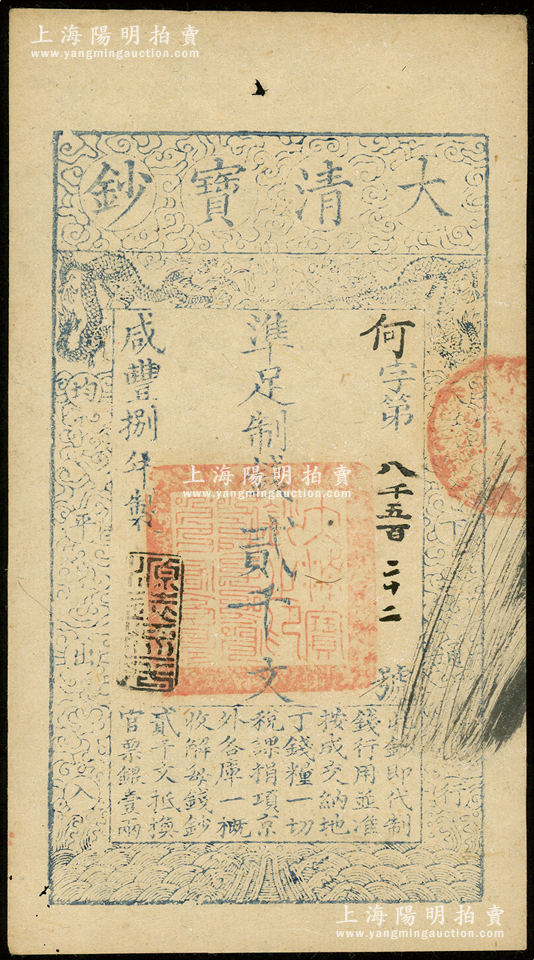 上海陽明拍賣
www.yangmingauction.com
大清寶鈔
天下通行
均平出入
何字第
八千五百二十二
號
準足制錢貳千文
咸豐捌年製
上海陽明拍賣
www.yangmingauction.com
此鈔即代制
錢行用並准
按成交納地
丁錢糧一切
稅課捐項京
外各庫一概
收解每錢鈔
貳千文抵換
官票銀壹兩
上海陽明拍賣
www.yangmingauction.com